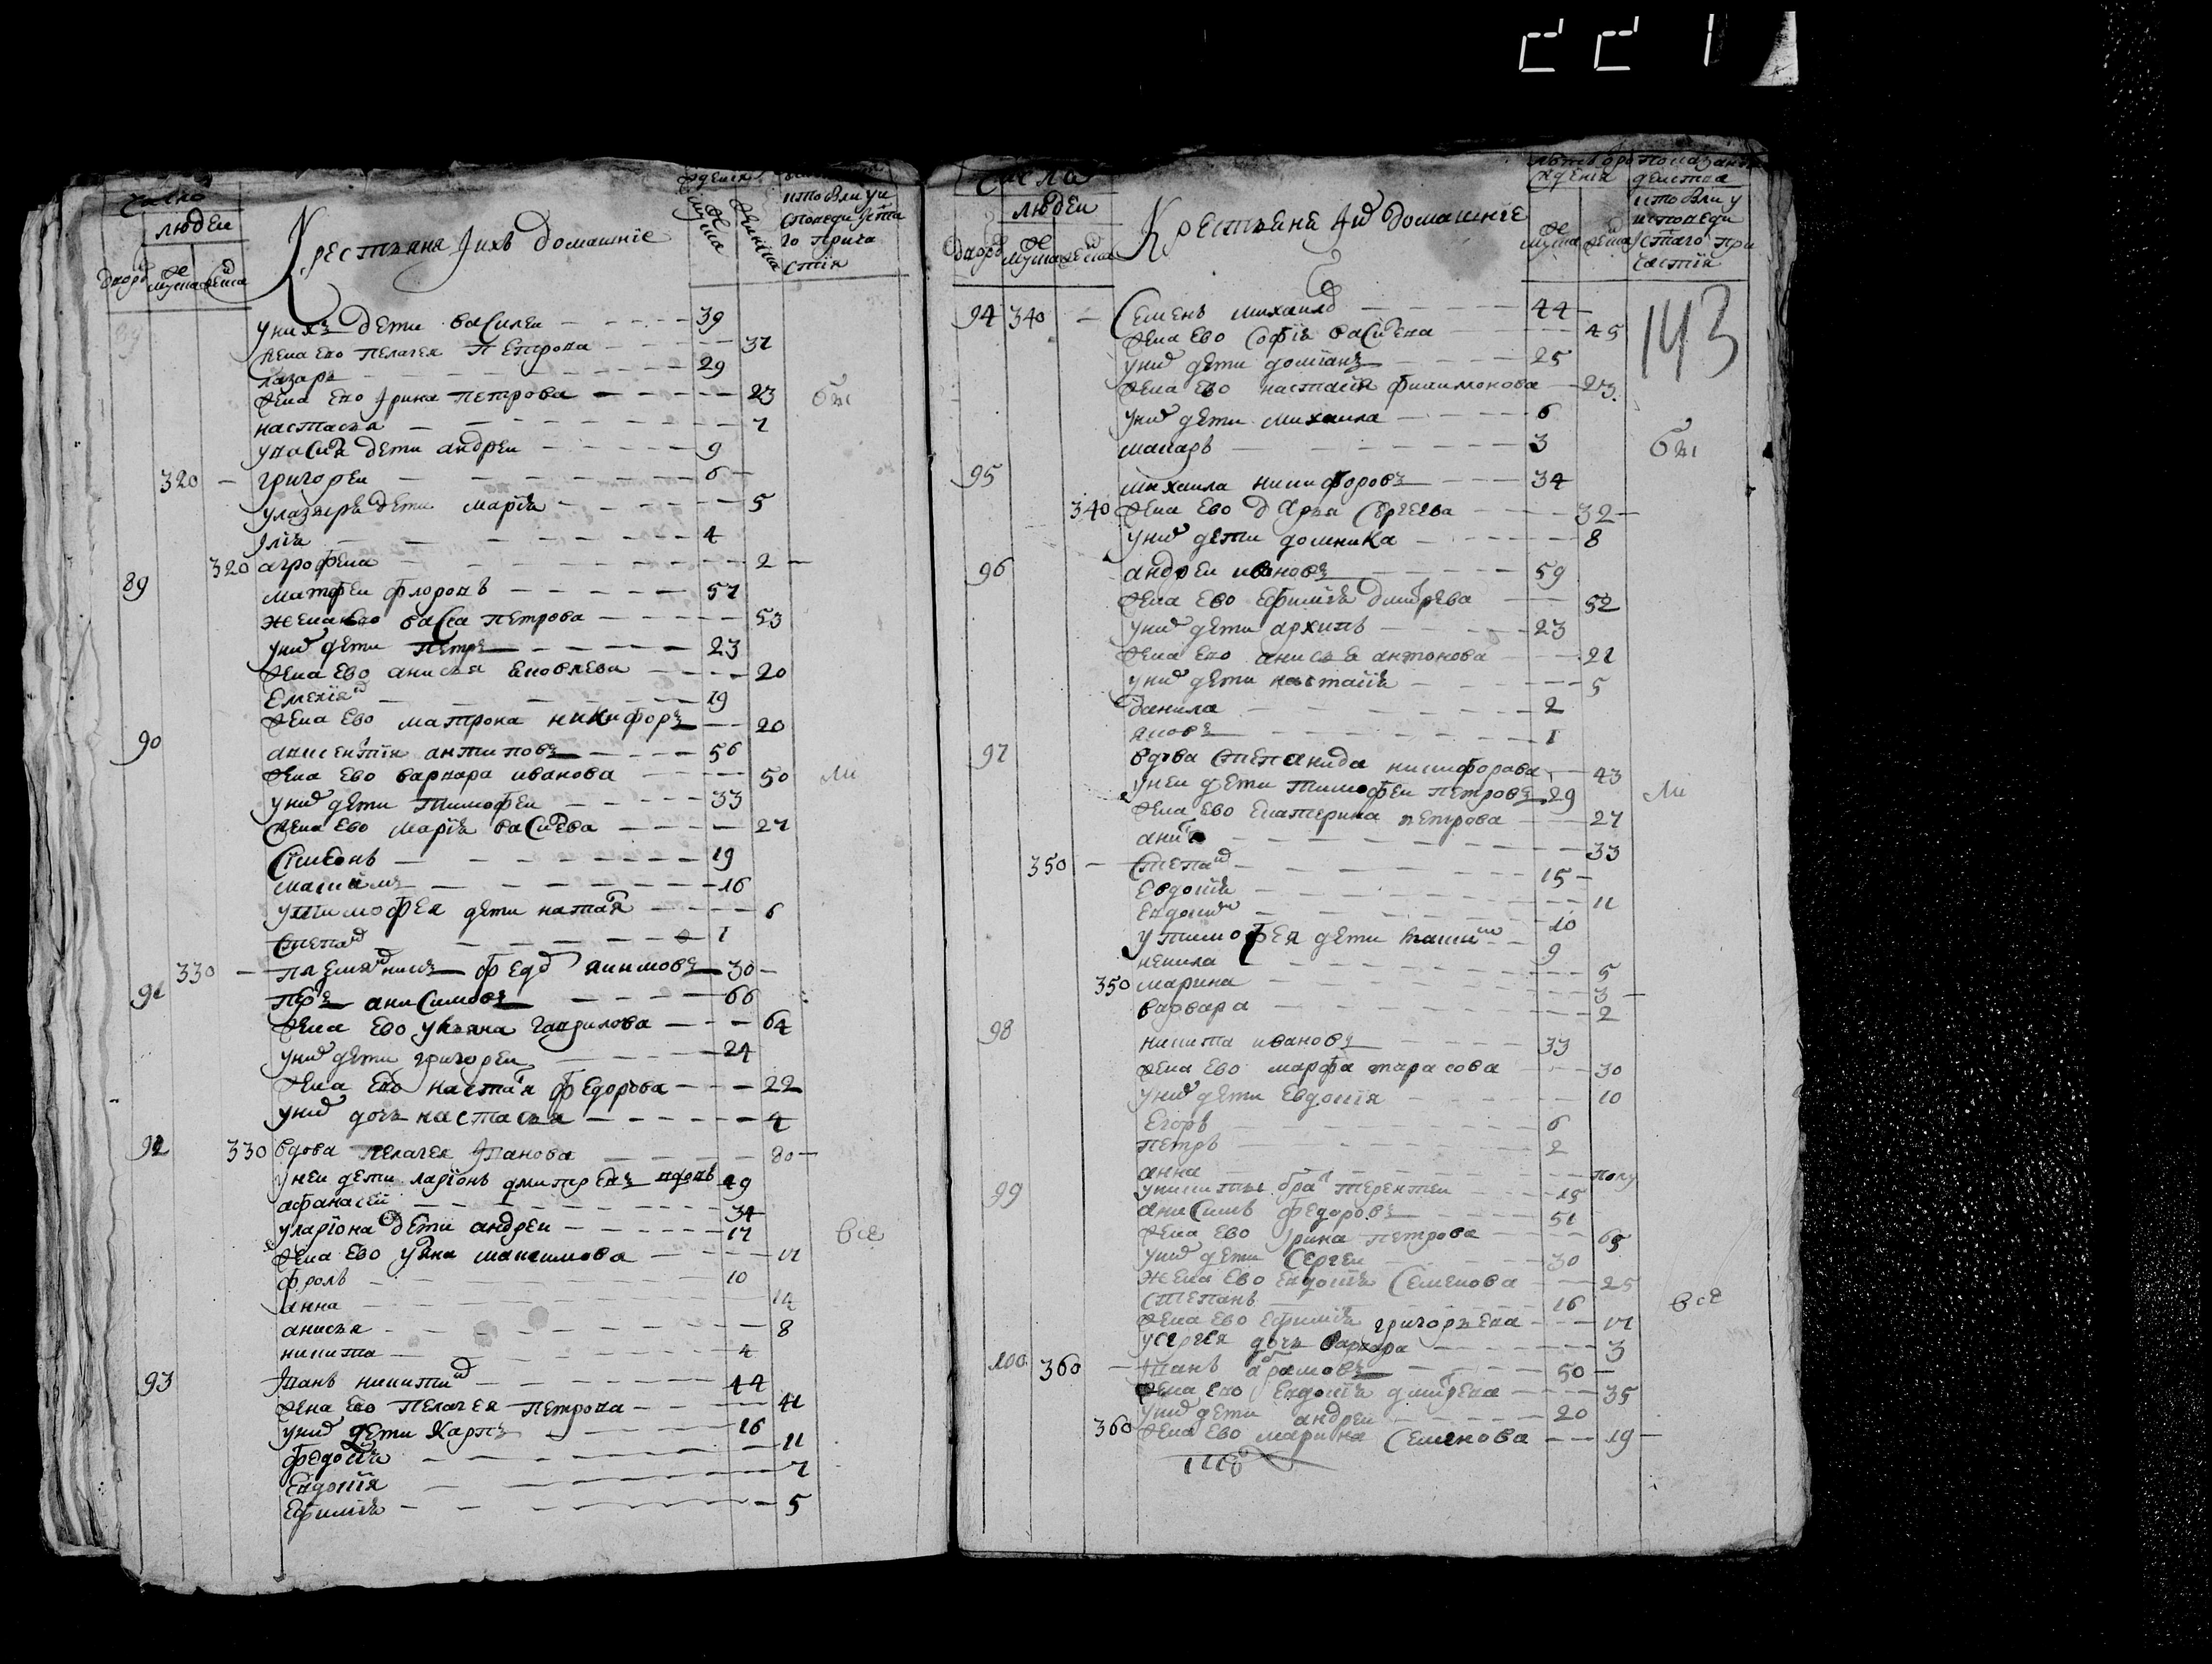 221
Число
людеи
дворо муска женска
Крестьяне Јихъ домашние
ждения
муска
женска
кто были у и
споведи и свята
го прича
стия
у нихъ дети василеи 39
жена ево пелагея петрова 37
лазарь 29
жена ево Јрина петрова 23 бы
настасья 7
у василья дети андреи 9
320 григореи 6
у лазаря дети мария 5
Јлия 4
320 агрофена 2
89 матфеи флоровъ 57
жена ево васса петрова 53
у них дети петръ 23
жена ево анисья яковлева 20
Емелiян 19
жена ево матрона никифор 20
90 авксентiи антиповъ 56
жена ево варвара иванова 50 ли
у них дети тимофеи 33
жена ево мария василева 27
Симеонъ 19
максимъ 16
у тимофея дети наталя 6
степан 1
330 племянникъ федор якимовъ 30
91 петръ анисимовъ 66
жена ево ульяна гаврилова 64
у них дети григореи 24
жена ево настася федорова 22
у них дочь настасья 4
92 330 вдова пелагея Јванова 80
у неи дети ларiонъ дмитревъ вдовъ 49
афанасеи 34
у ларiона дети андреи 17 все
жена ево уляна максимова 17
фролъ 10
анна 14
анисья 8
никита 4
93 Јванъ никитин 44
жена ево пелагея петрова 41
у них дети карпъ 16
федосiя 11
Евдокiя 7
Ефимiя 5
Число
людеи
дворо муска женска
Крестьяне Ји домашнiе
лета рождения
показанiе деиства
муска женска
кто были у
исповеди
и святаго при
частiя
143
94 340 Семенъ михаило 44
жена ево софiя василева 45
у них дети домианъ 25
жена ево настасiя филимонова 23
у них дети михаила 6
макаръ 3 бы
95 михаила никифоровъ 34
340 жена ево дарья сергеева 32
у них дети домника 8
96 андреи ивановъ 59
жена ево ефимiя дмитрева 52
у них дети архипъ 23
жена ево анисья антонова 21
у них дети настасiя 5
данила 2
яковъ 1
97 вдова степанида никифорова 43
у неи дети тимофеи петровъ 29 ли
жена ево екатерина петрова 27
33
350 степан 15
Евдокiя 11
Евдоким 10
у тимофея дети 9
ненила 5
350 марина 3
варвара 2
98 никита ивановъ 33
жена ево марфа тарасова 30
у них дети Евдокiя 10
Егоръ 6
петръ 2
анна полу
у никиты брат терентеи 15
99 анисимъ федоровъ 51
жена ево Јрина петрова 65
у них дети сергеи 30
жена ево Евдокiя семенова 25
степанъ 16 все
жена ево ефимiя григорьева 17
у сергея дочь варвара 3
100 360 Јванъ абрамовъ 50
жена ево Евдокiя дмитрева 35
у них дети андреи 20
360 жена ево марина семенова 19